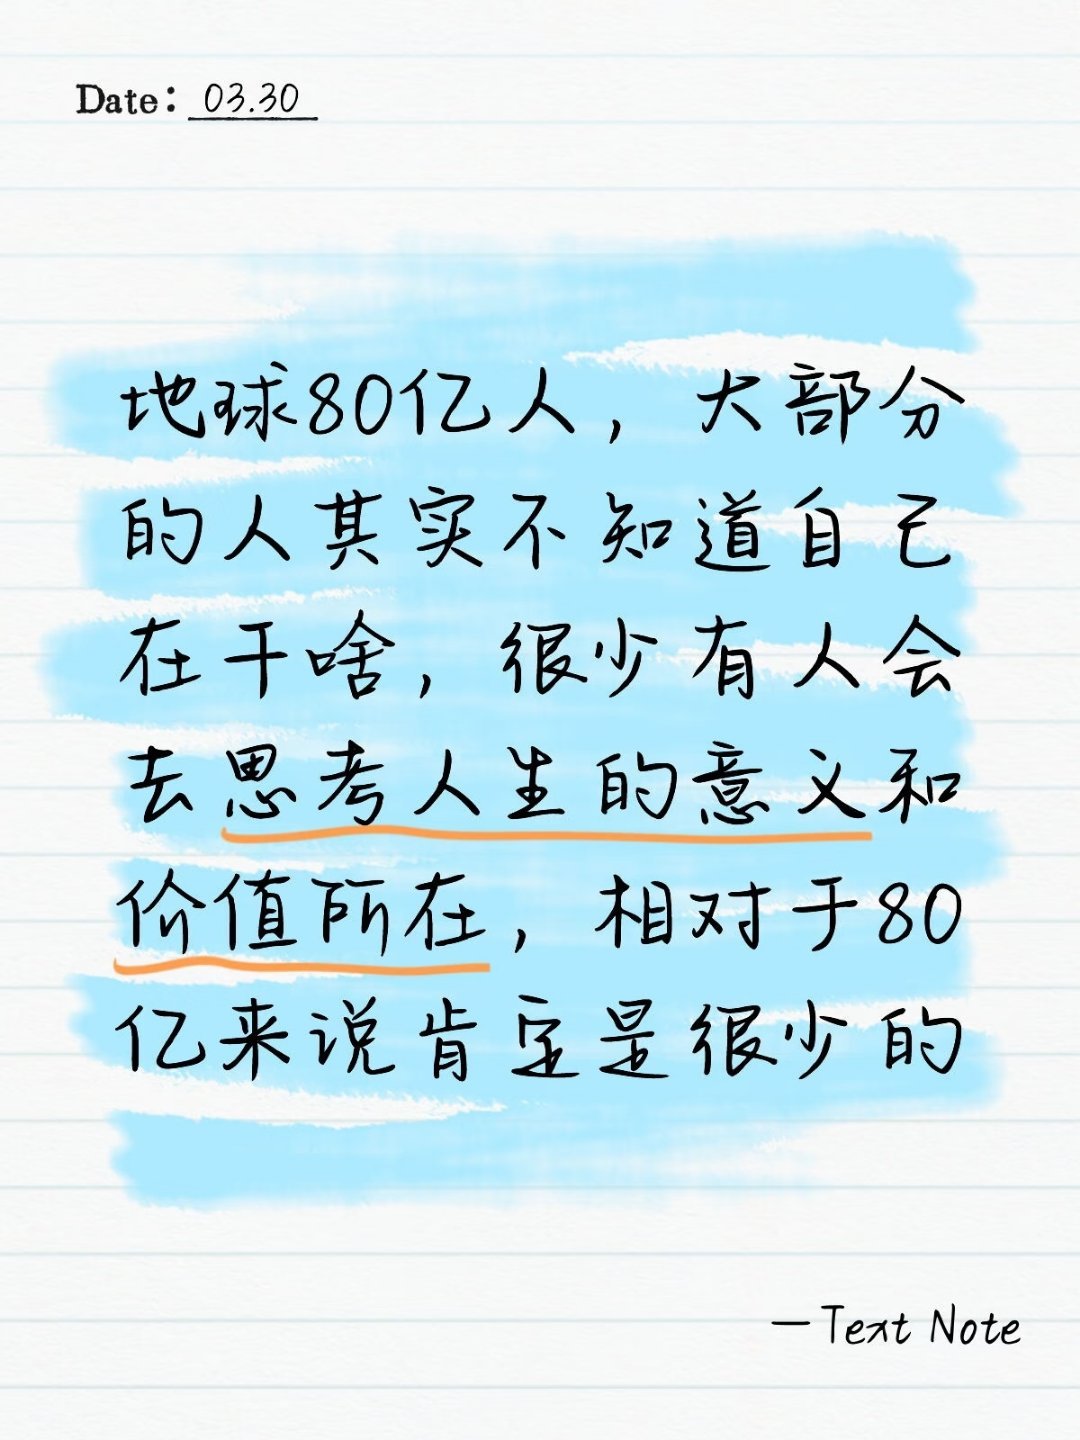 Date: 03.30
地球80亿人，大部分
的人其实不知道自己
在干啥，很少有人会
去思考人生的意义和
价值所在，相对于80
亿来说肯定是很少的
—Text Note